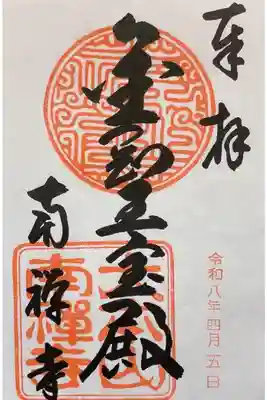 奉拝
金剛王宝殿
南禅寺
令和八年四月五日